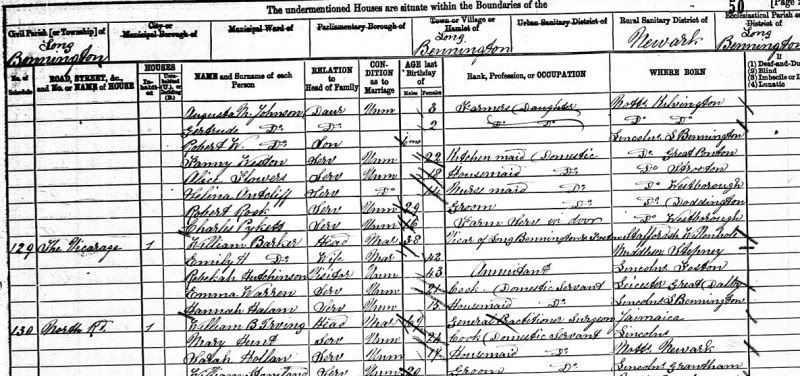 The undermentioned Houses are situate within the Boundaries of the 50 [Page
Civil Parish [or Township] of Long Bennington
City or Municipal Borough of
Municipal Ward of
Parliamentary Borough of
Town or Village or Hamlet of Long Bennington
Urban Sanitary District of
Rural Sanitary District of Newark
Ecclesiastical Parish or District of Long Bennington
No. of Schedule
ROAD, STREET, &c., and No. or NAME of HOUSE
HOUSES
In-habit-ed
Unin-habited (U.), or Building (B.)
NAME and Surname of each Person
RELATION to Head of Family
CON-DITION as to Marriage
AGE last Birthday of
Males
Females
Rank, Profession, or OCCUPATION
WHERE BORN
If
(1) Deaf-and-Du
(2) Blind
(3) Imbecile or I
(4) Lunatic
Augusta M. Johnson Daur Unm 3 Farmers Daughter Notts Kilvington
Gertrude Do 2 Do Do Do Do
Robert W. Do Son 6 mo Lincolns L Bennington
Fanny Weston Serv Unm 22 Kitchen maid (Domestic Do Great Ponton
Alice Flowers Serv Unm 18 Housemaid Do Do
Selina Antcliff Serv Do 14 Nurse maid Do Do Westborough
Robert Rosk Serv Unm 29 Groom Do Do Doddington
Charles Pykett Serv Unm 16 Farm Serv in door Do Westborough
129 The Vicarage 1 William Barker Head Mar 38 Vicar of Long Bennington & Foston Staffordsh
Emily H Do Wife Mar 42 Middlsex Stepney
Rebekah Hutchinson Visitor Unm 43 Annuitant Lincolns Foston
Emma Warren Serv Unm 21 Cook (Domestic Servant Leicester Great Dalby
Hannah Halam Serv Unm 15 Housemaid Do Lincolns L Bennington
130 North Rd. 1 William B. Irving Head Mar General Practitioner Surgeon Jamaica
Mary Hunt Serv Unm 24 Cook (Domestic Servant Lincolns
Sarah Hollan Serv Unm 17 Housemaid Do Notts Newark
William Serv Unm 20 Groom Do Lincolns Grantham